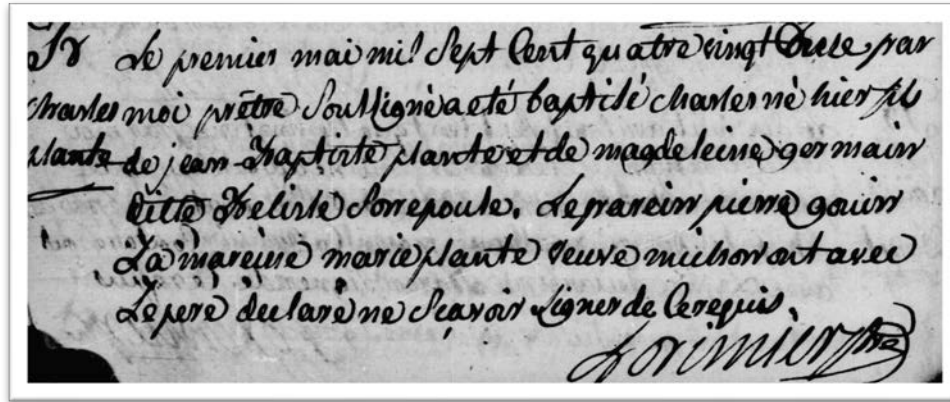 Le premier mai mil Sept Cent quatre vingt par
Charles moi prêtre Soussigné a eté baptisé charles né hier fils
plante de jean Baptiste plante et de magdeleine germain
ditte Belisle Son epouse. Le parein pierre gouin
La mareine marie plante veuve michon ont avec
Le pere declare ne Sçavoir Signer de Ce requis.
Lorimier ptre